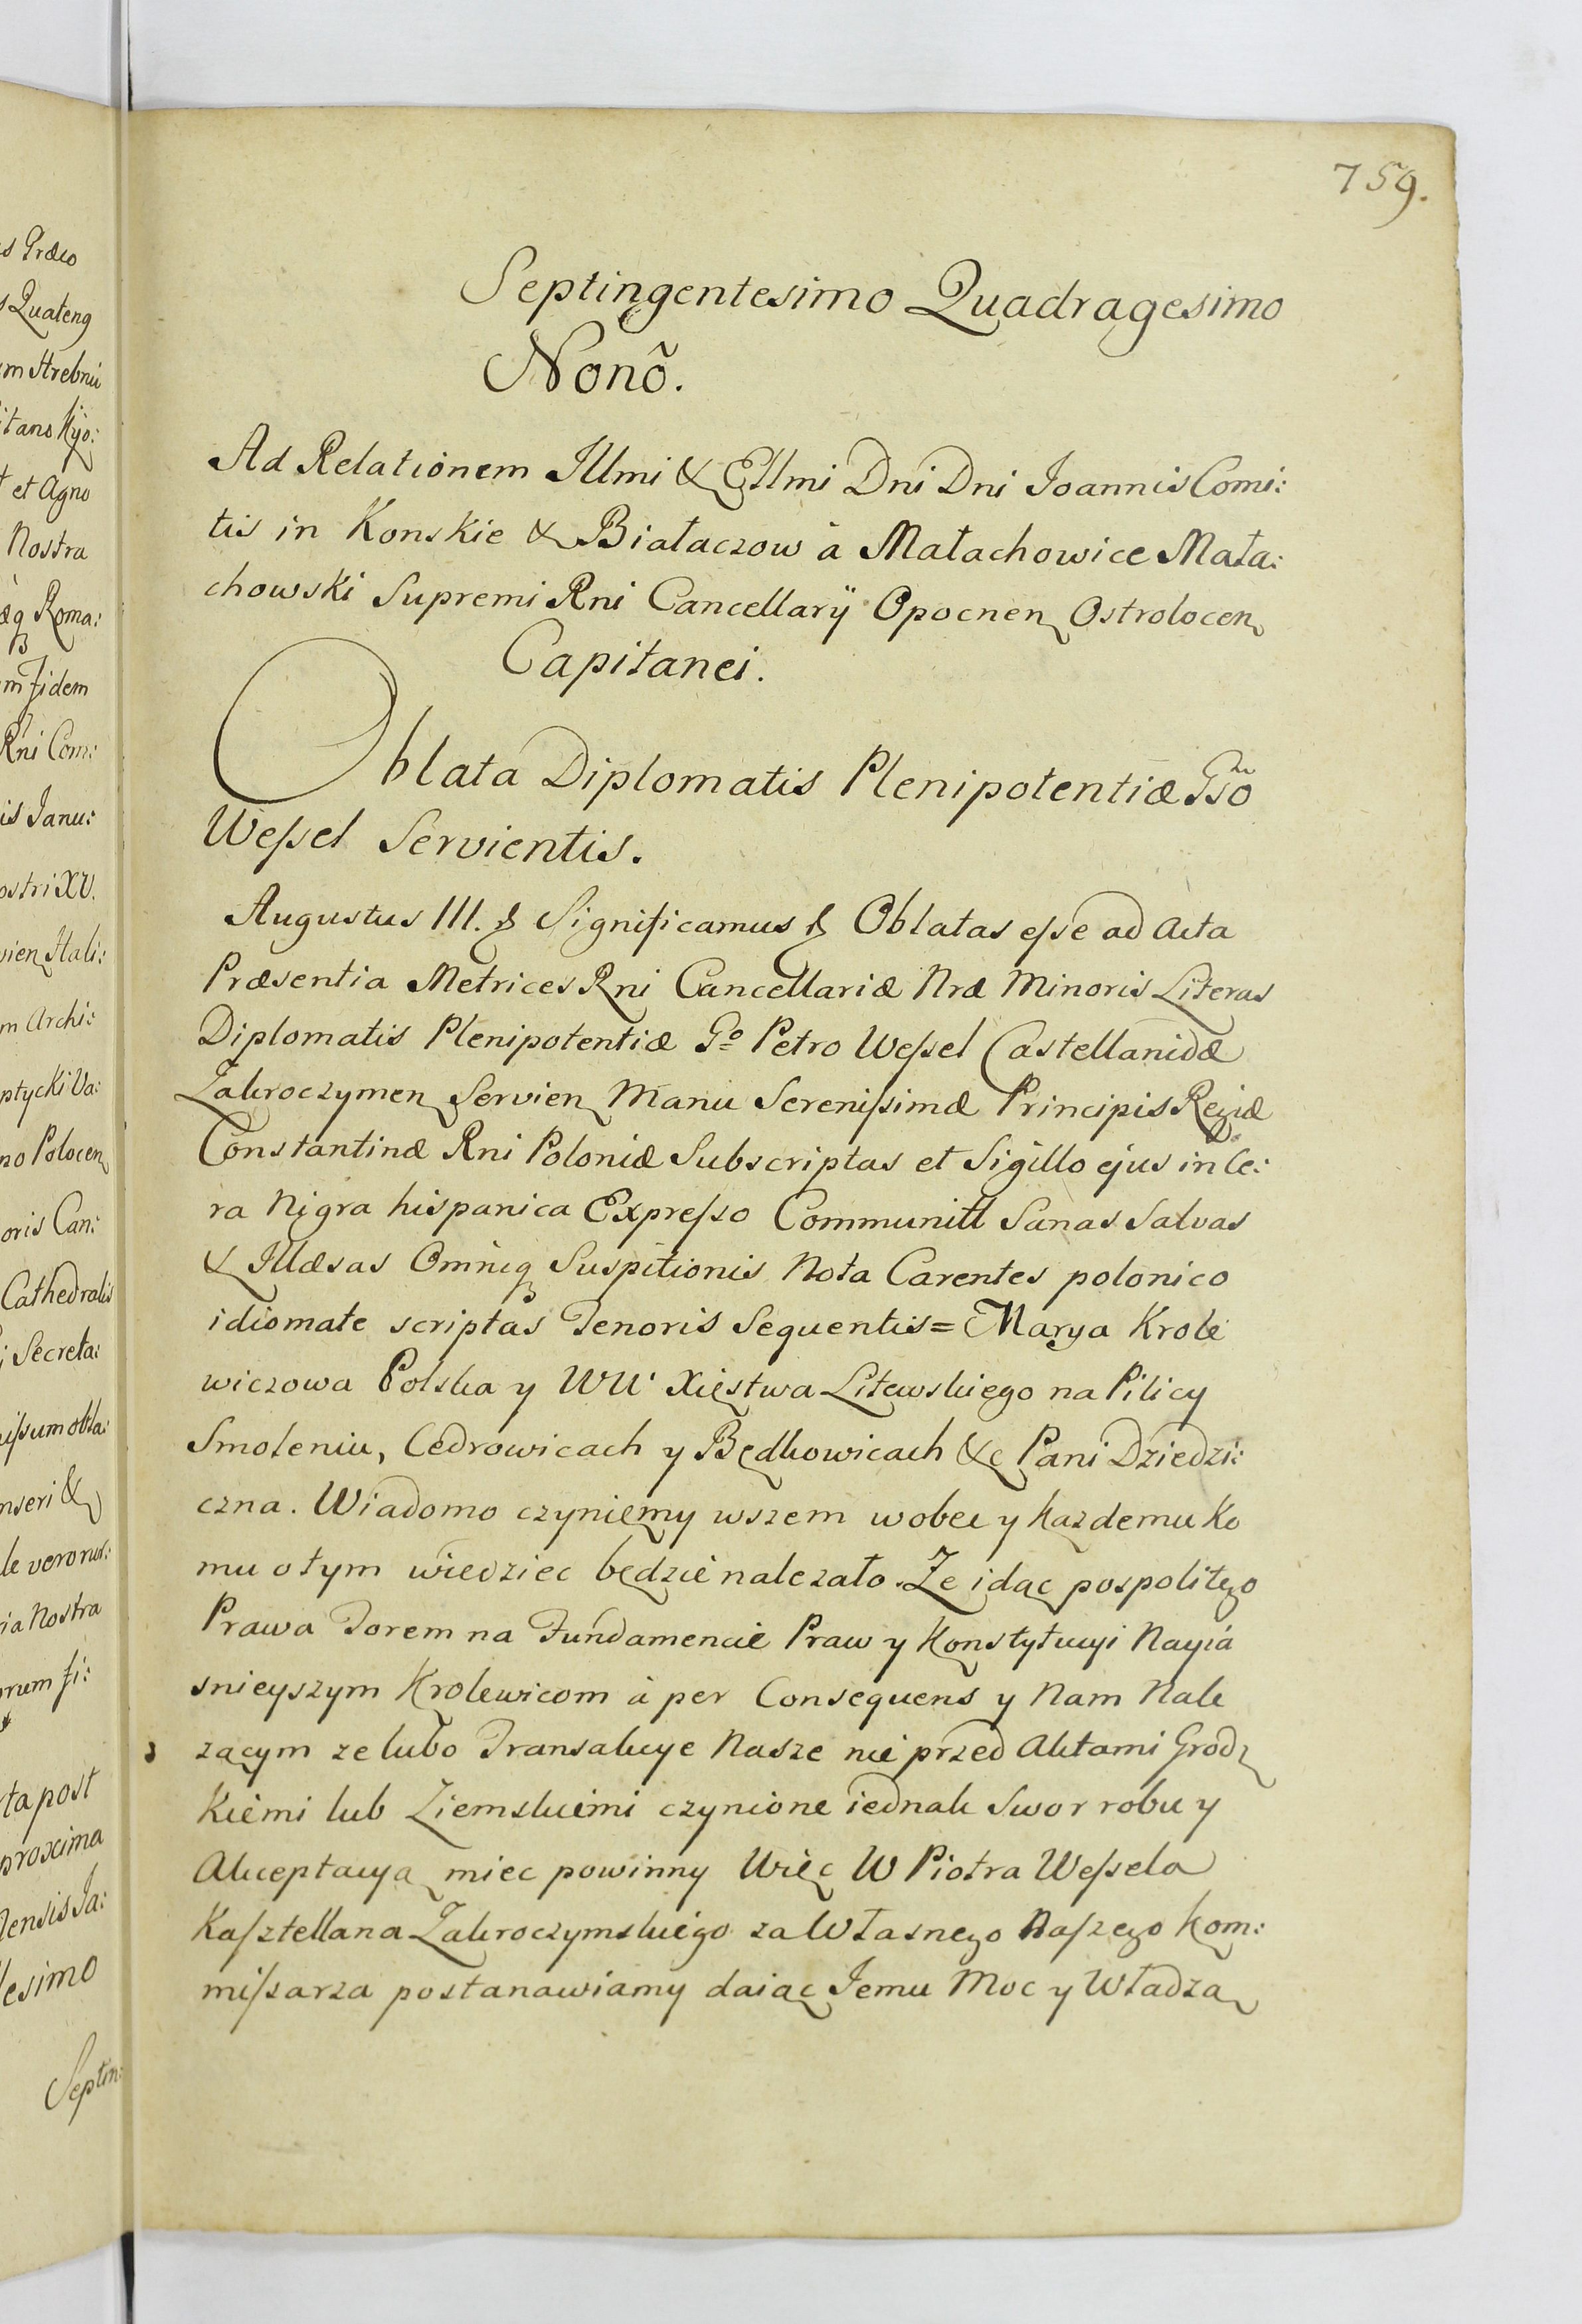 s Græco
s Quateng
m Strebnii
itano Kijo:
t et Agno
Nostra
æq Roma:
m Fidem
Rni Com:
is Janu:
ostri XV.
vien Itali:
m Archi:
ptycki Va:
no Polocen
oris Can:
Cathedralis
Secreta:
nseri &
le veronus:
ia Nostra
orum fi:
ta post
proxima
lensis Ja:
lesimo
Septin:
759.
Septingentesimo Quadragesimo
Nonõ.
Ad Relationem Illmi & Ellmi Dni Dni Joannis Comi:
tis in Konskie & Białaczow à Małachowice Mała:
chowski Supremi Rni Cancellarÿ Opocnen Ostrolocen
Capitanei.
Oblata Diplomatis Plenipotentiæ Gso
Weſsel Servientis.
Augustus III. & Significamus & Oblatas eſse ad Acta
Præsentia Metrices Rni Cancellariæ Nræ Minoris Literas
Diplomatis Plenipotentiæ Go Petro Weſsel Castellanidæ
Zakroczymen Servien Manu Sereniſsimæ Principis Regiæ
Constantinæ Rni Poloniæ Subscriptas et Sigillo ejus in Ce:
ra Nigra hispanica Expreſso Communitt Sanas Salvas
& Illæsas Omniq Suspitionis Nota Carentes polonico
idiomate scriptas Tenoris Sequentis = Marya Krole
wiczowa Polska y WW Xięstwa Litewskiego na Pilicy
Smoleniu, Cedrowicach y Będkowicach &c Pani Dziedzi:
czna. Wiadomo czyniemy wszem wobec y Kazdemu Ko
mu o tym wiedziec będzie nalezało. Ze idąc pospolitego
Prawa Torem na Fundamencie Praw y Konstytucyi Nayia
snieyszym Krolewicom à per Consequens y Nam Nale
zącym ze lubo Transakcye Nasze nie przed Aktami Grodz
Kiemi lub Ziemskiemi czynione iednak Swor robu y
Akceptacyą miec powinny Więc W Piotra Weſsela
Kaſztellana Zakroczymskiego za Własnego Naſzego Kom:
miſsarza postanawiamy daiąc Jemu Moc y Władzą